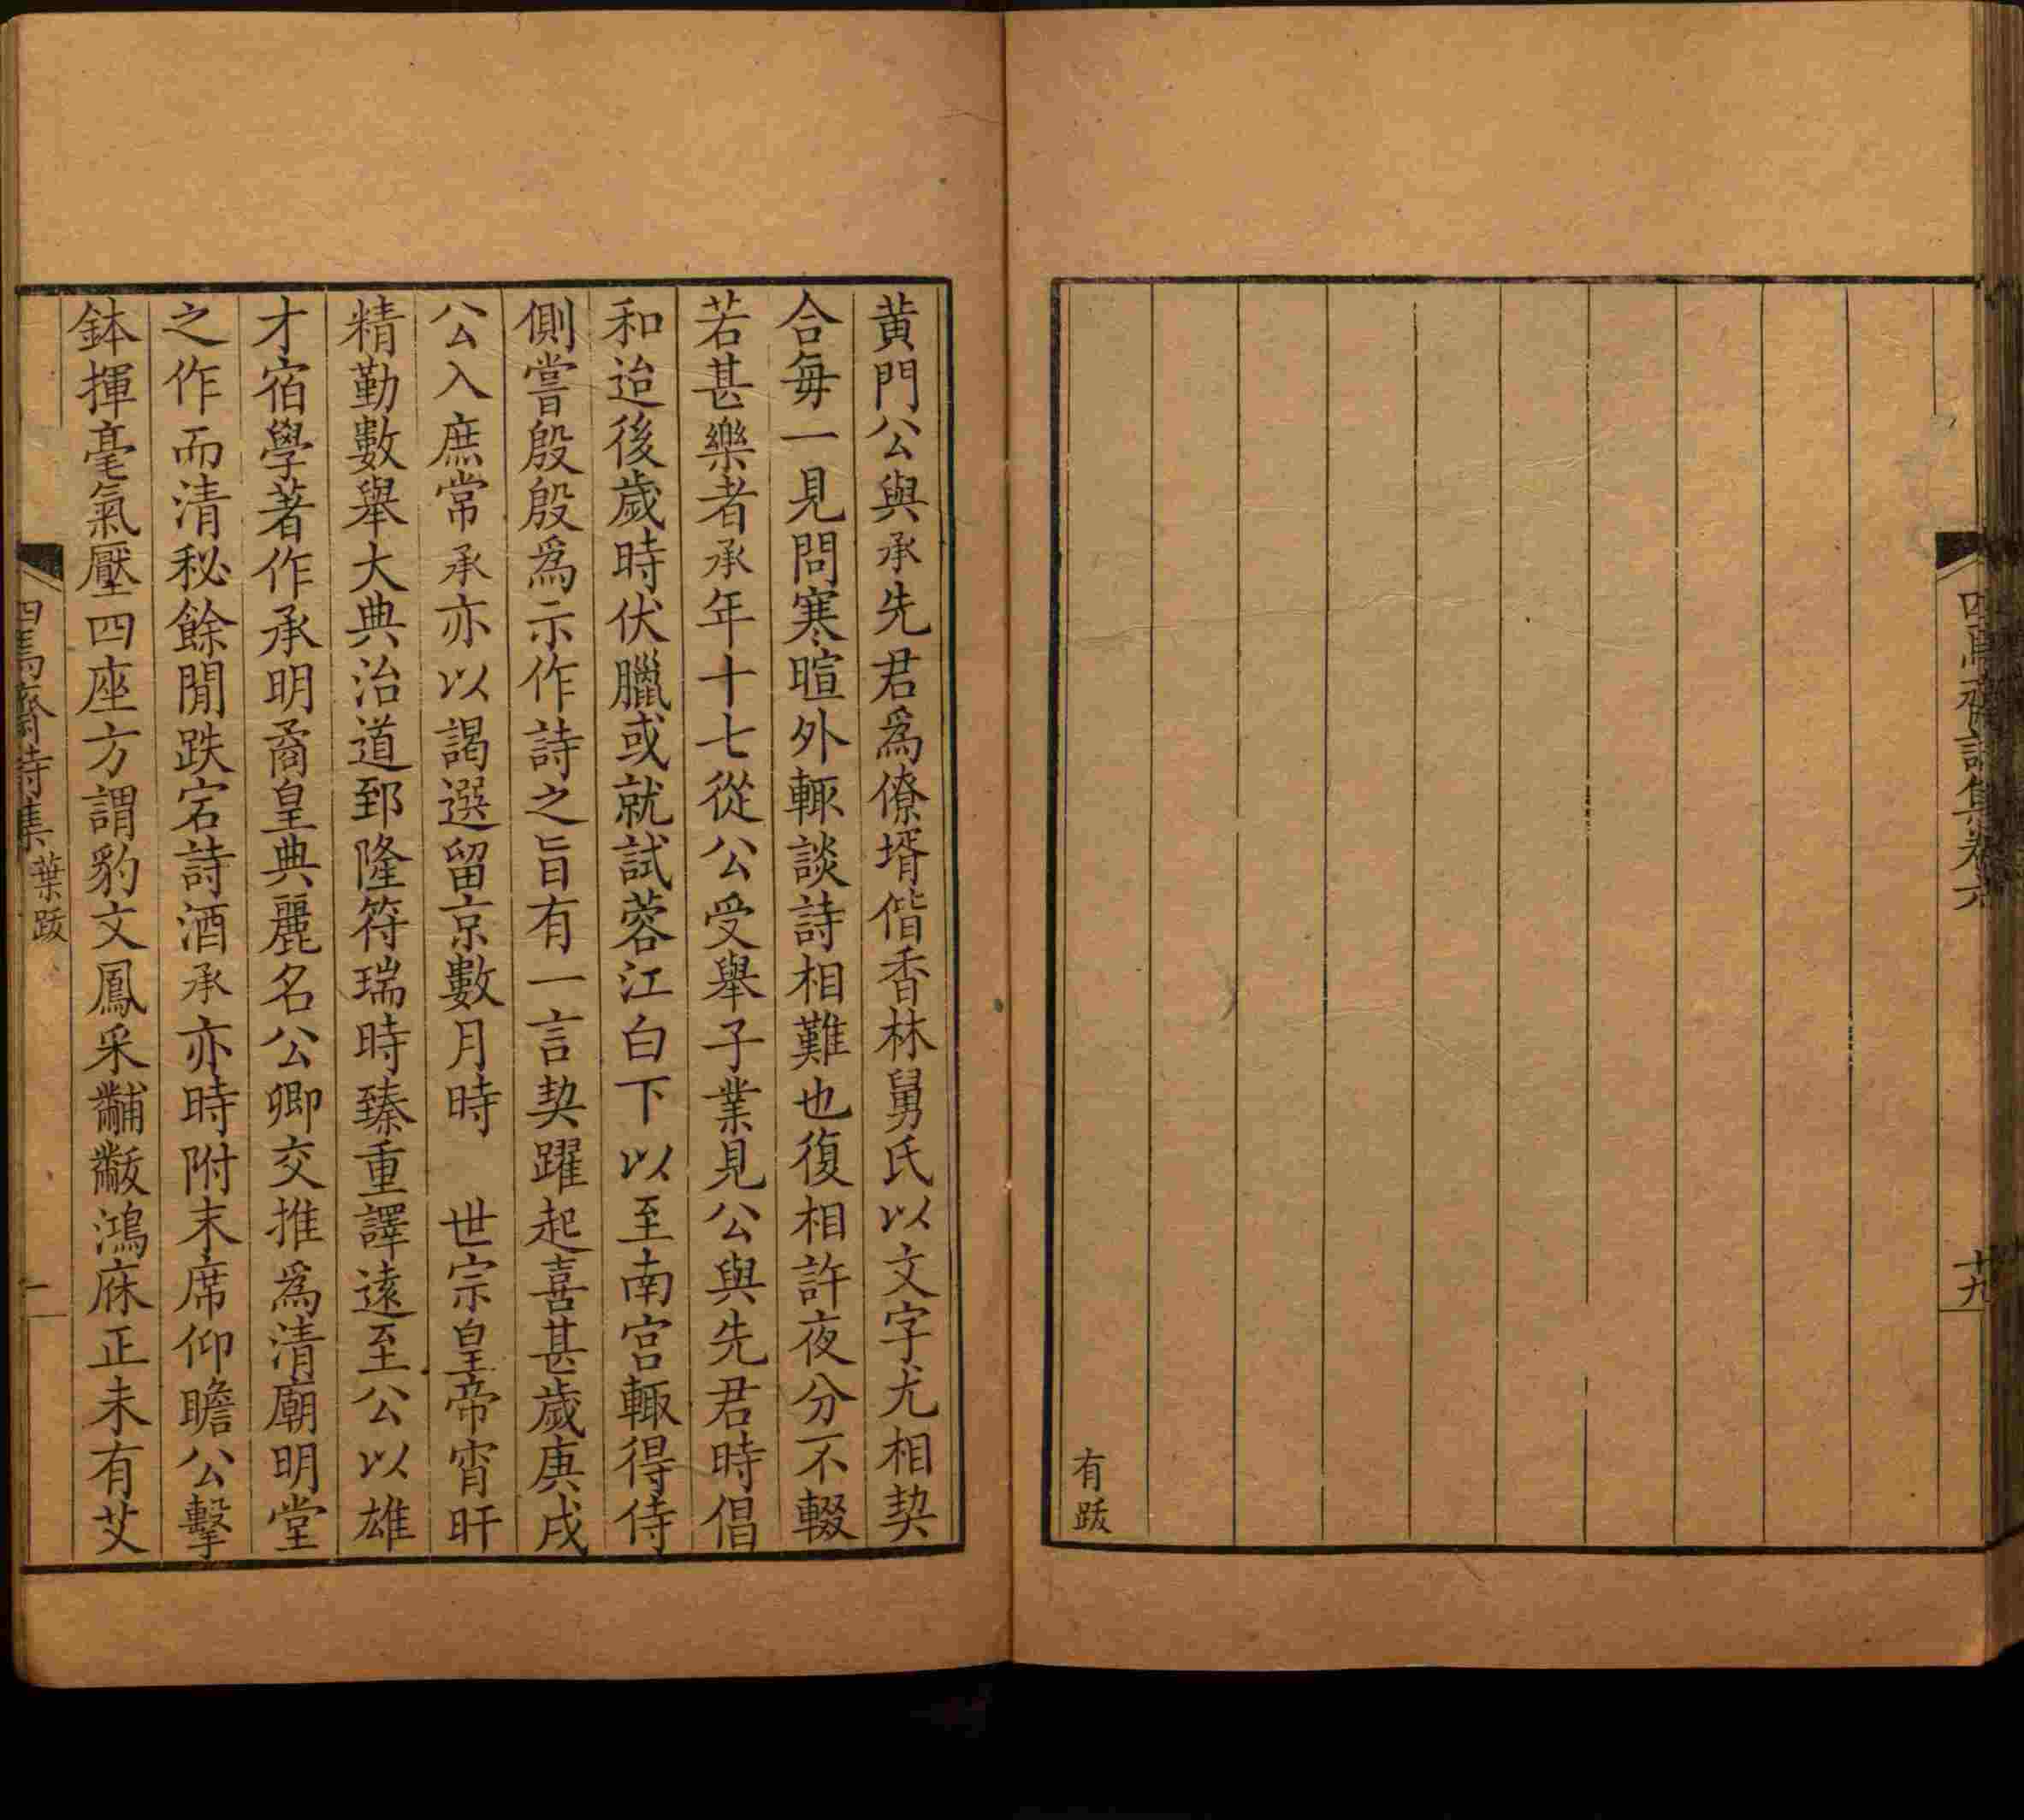 四焉齋詩集卷六
十九
有跋
黄門公與承先君爲僚壻偕香林舅氏以文字尤相契
合每一見問寒暄外輒談詩相難也復相許夜分不輟
若甚樂者承年十七從公受舉子業見公與先君時倡
和迨後歲時伏臘或就試蓉江白下以至南宫輒得侍
側嘗殷殷爲示作詩之旨有一言契躍起喜甚歲庚戌
公入庶常承亦以謁選留京數月時　世宗皇帝宵旰
精勤數舉大典治道郅隆符瑞時臻重譯遠至公以雄
才宿學著作承明矞皇典麗名公卿交推爲清廟明堂
之作而清秘餘閒跌宕詩酒承亦時附末席仰瞻公擊
鉢揮毫氣壓四座方謂豹文鳳采黼黻鴻庥正未有艾
四焉齋詩集
葉跋
一